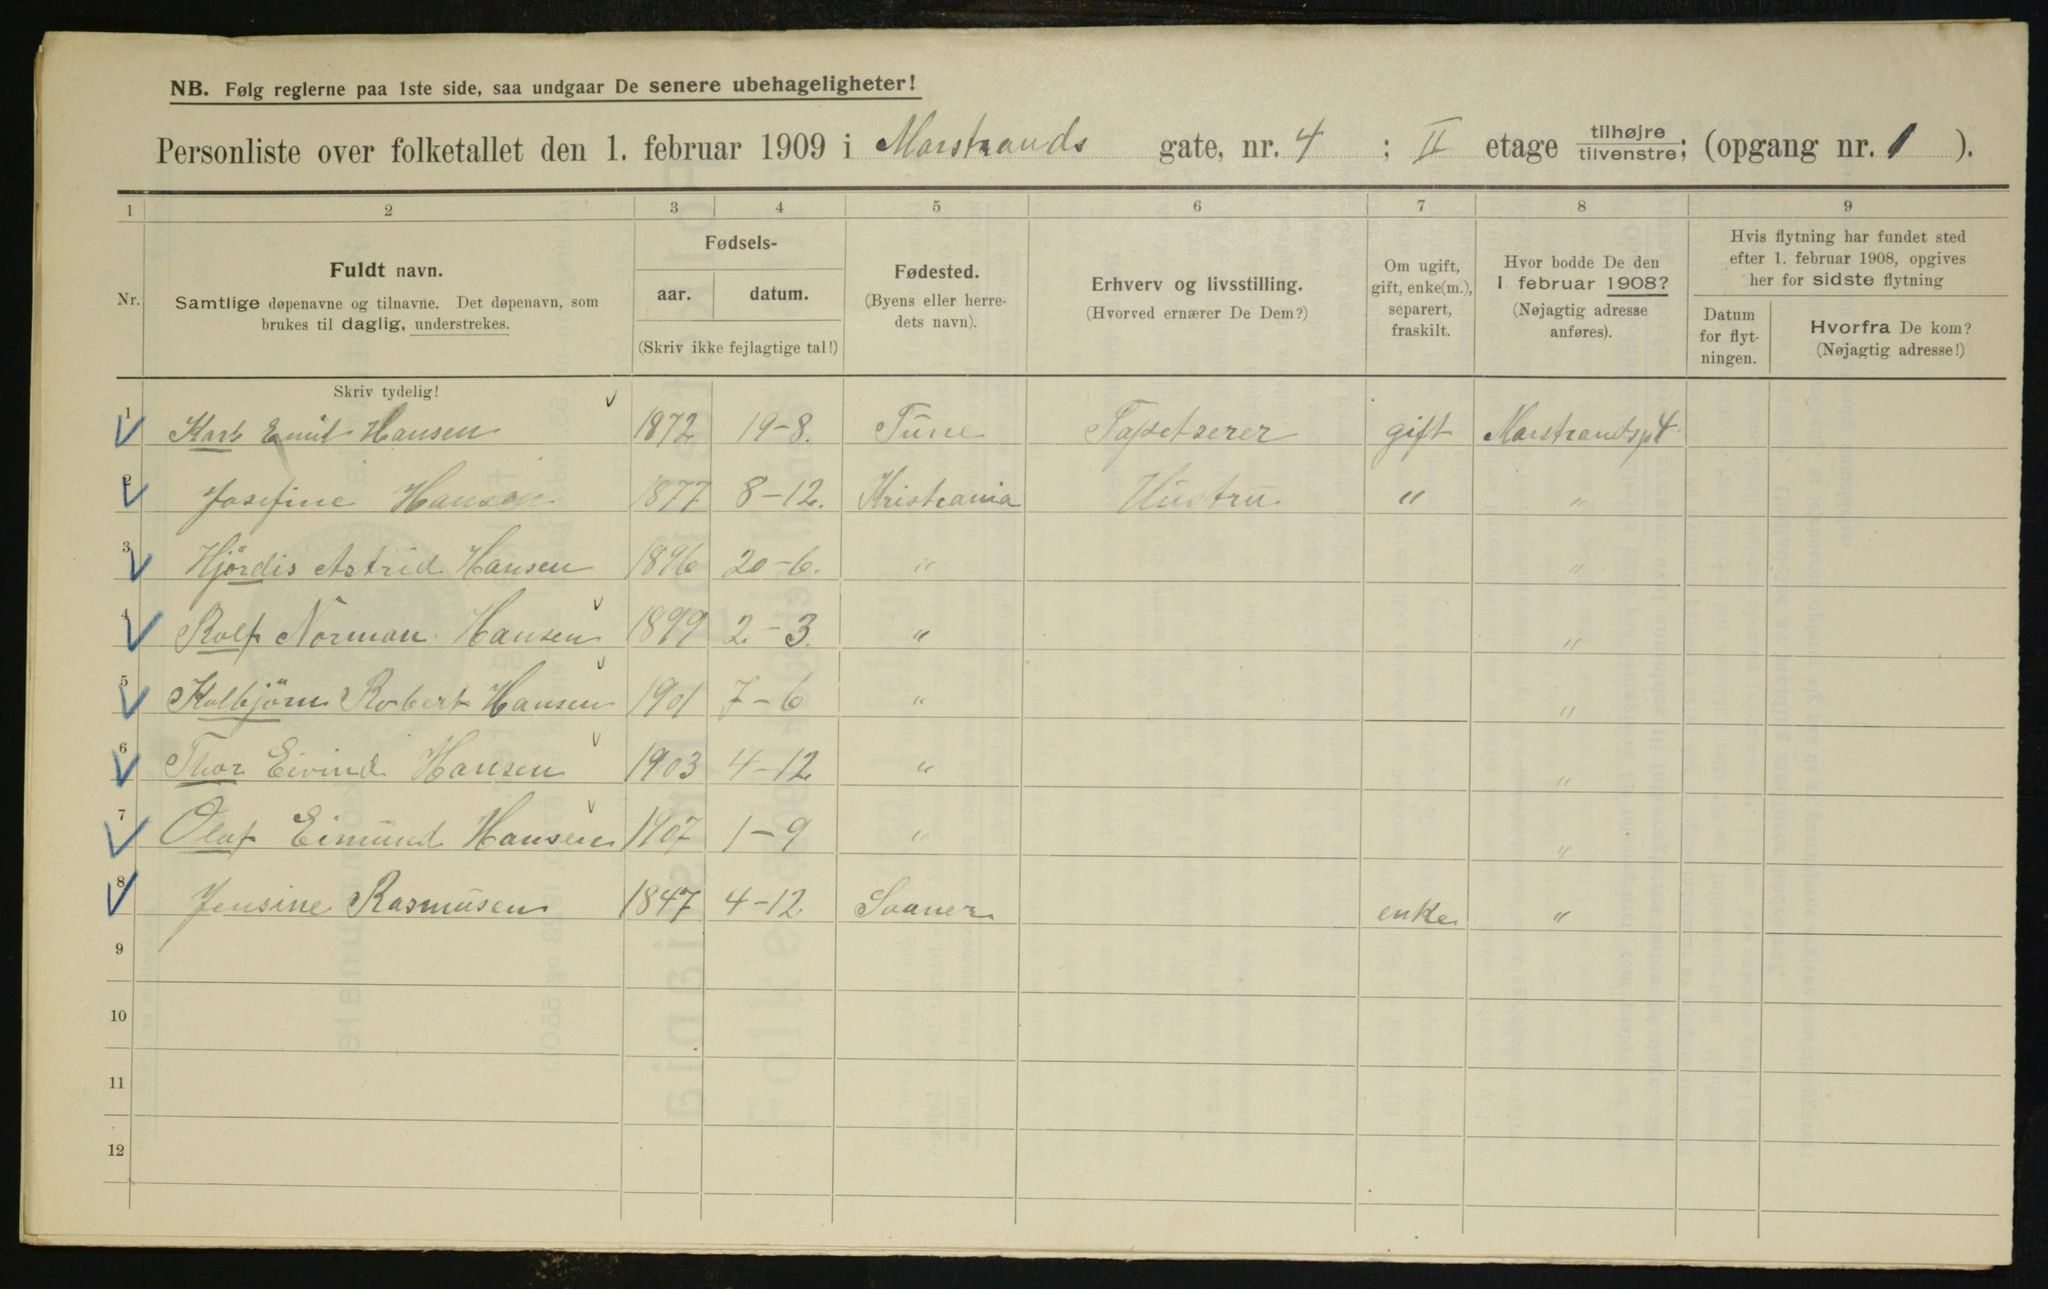 NB. Følg reglerne paa 1ste side, saa undgaar De senere ubehageligheter!
Personliste over folketallet den 1. februar 1909 i Marstrands gate, nr. 4 ; II etage tilhøjre/tilvenstre; (opgang nr. 1 ).
1 2 3 4 5 6 7 8 9
Nr. Fuldt navn. Samtlige døpenavne og tilnavne. Det døpenavn, som brukes til daglig, understrekes.
Fødsels- aar. datum. (Skriv ikke fejlagtige tal!)
Fødested. (Byens eller herredets navn).
Erhverv og livsstilling. (Hvorved ernærer De Dem?)
Om ugift, gift, enke(m.), separert, fraskilt.
Hvor bodde De den 1 februar 1908? (Nøjagtig adresse anføres).
Hvis flytning har fundet sted efter 1. februar 1908, opgives her for sidste flytning
Datum for flytningen. Hvorfra De kom? (Nøjagtig adresse!)
Skriv tydelig!
1 Karl Emil Hansen 1872 19-8. Tune Tapetserer gift Marstrandsgt 4
2 Josefine Hansen 1877 8-12. Kristiania Hustru " "
3 Hjördis Astrid Hansen 1896 20-6. " "
4 Rolf Norman Hansen 1899 2-3. " "
5 Kolbjörn Robert Hansen 1901 7-6 " "
6 Thor Eivind Hansen 1903 4-12 " "
7 Olaf Eimund Hansen 1907 1-9 " "
8 Jensine Rasmusen 1847 4-12 Saaner enke "
9
10
11
12